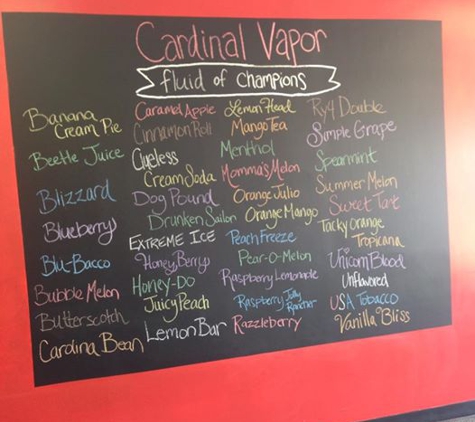 Cardinal Vapor
fluid of Champions
Banana
Cream Pie
Beetle Juice
Blizzard
Blueberry
Blu-Bacco
Bubble Melon
Butterscotch
Cardina Bean
Caramel Apple
Cinnamon Roll
Clueless
Cream Soda
Dog Pound
Drunken Sailon
EXTREME ICE
Honey Berry
Honey-Do
Juicy Peach
Lemon Bar
Lemon Head
Mango Tea
Menthol
Momma's Melon
Orange Julio
Orange Mango
Peach Freeze
Pear-O-Melon
Raspberry Lemonade
Raspberry Jolly
Rancher
Razzleberry
Ry4 Double
Simple Grape
Spearmint
Summer Melon
Sweet Tart
Tacky Orange
Tropicana
Unicorn Blood
Unflavored
USA Tobacco
Vanilla Bliss